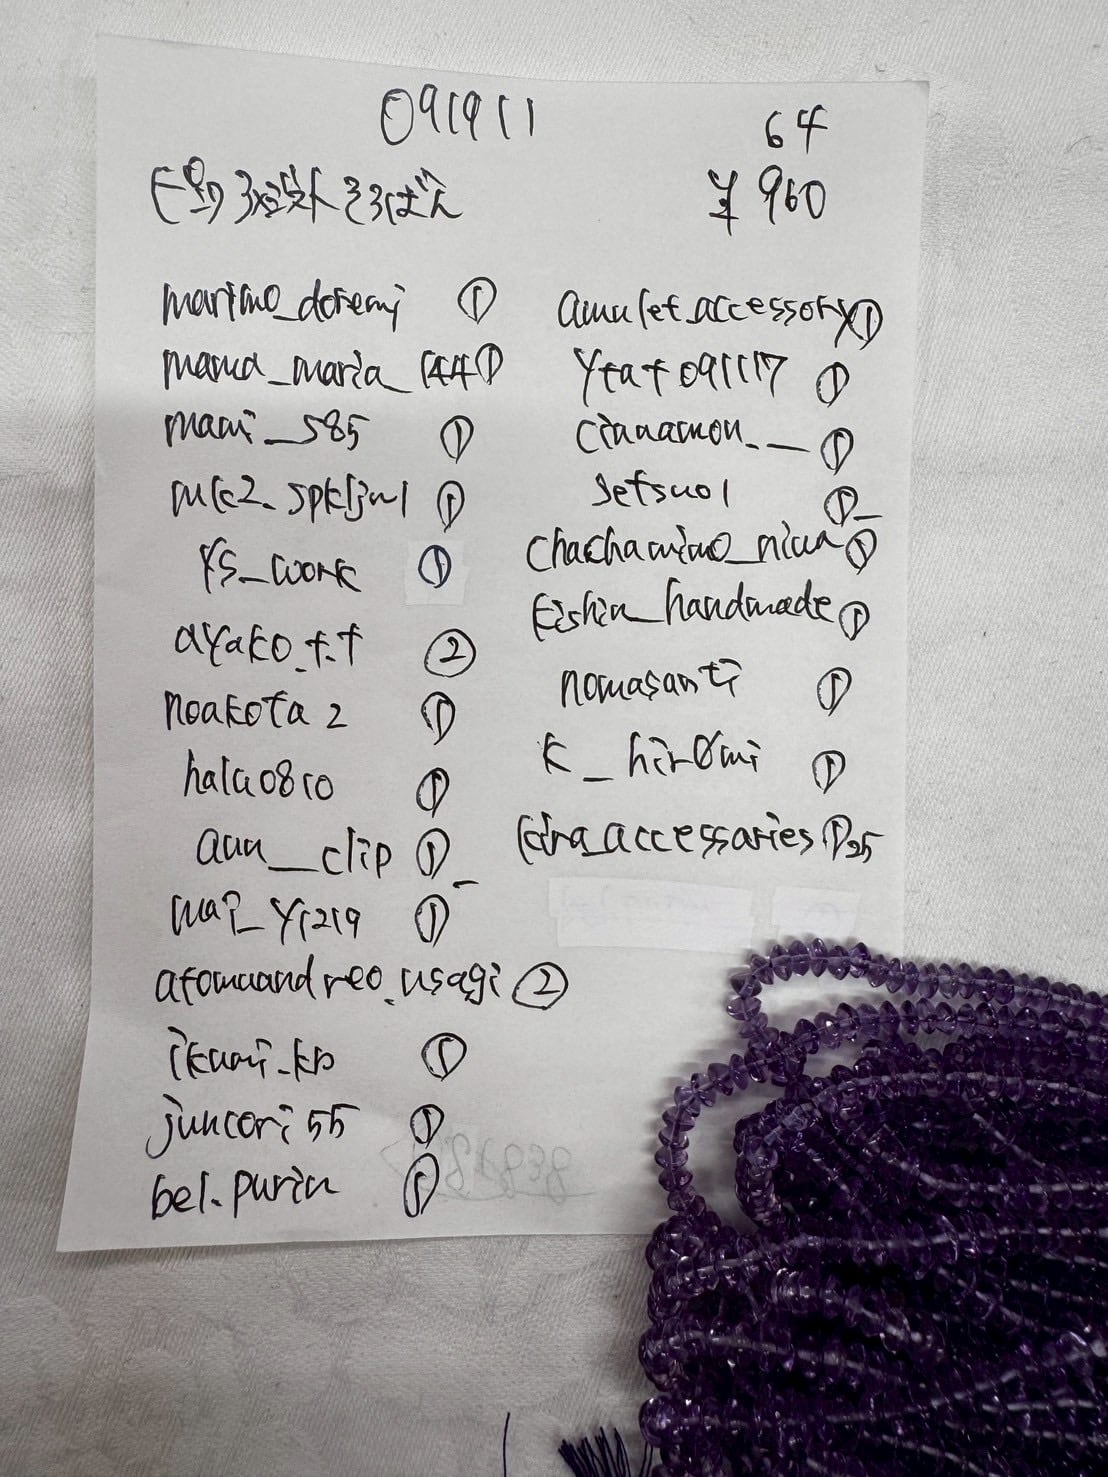 091911
64
¥960
そろばん
marimo_doremi ①
mama_maria_144 ①
mami_585 ①
①
ys_work ①
ayako.t.t ②
noakota2 ①
halu0810 ①
auu__clip ①
mai_y1219 ①
atomuandreo.usagi ②
ikumi_kb ①
juncori55 ①
bel.purin ①
amulet.accessory ①
ytat091117 ①
cinnamon.__ ①
setsuo1 ①
chachamimo_nina ①
kishin_handmade ①
nomasanti ①
k_hir0mi ①
kira_accessaries ① 25